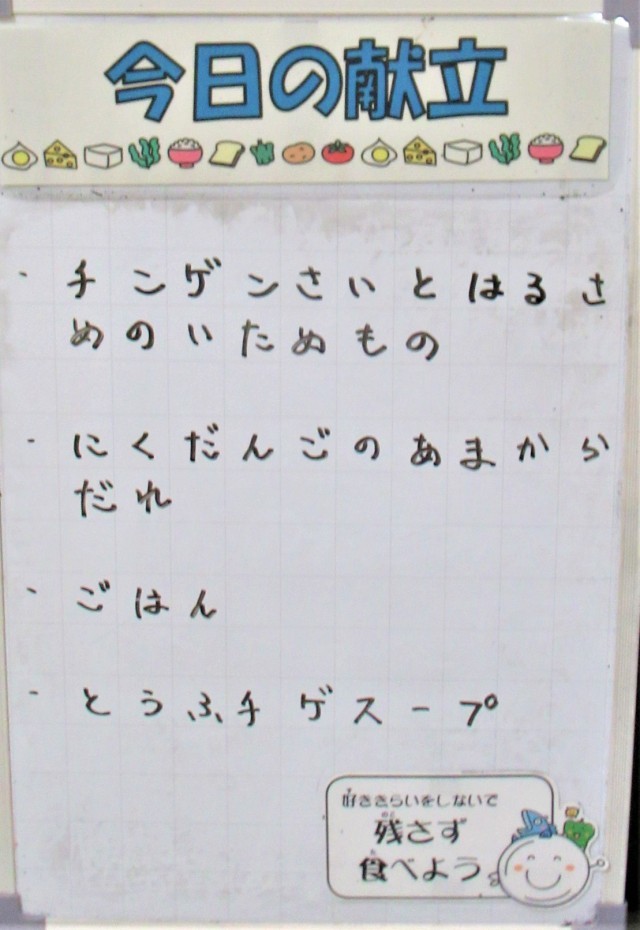 今日の献立
・チンゲンさいとはるさ
めのいためもの
・にくだんごのあまから
だれ
・ごはん
・とうふチゲスープ
好ききらいをしないで
残さず
食べよう